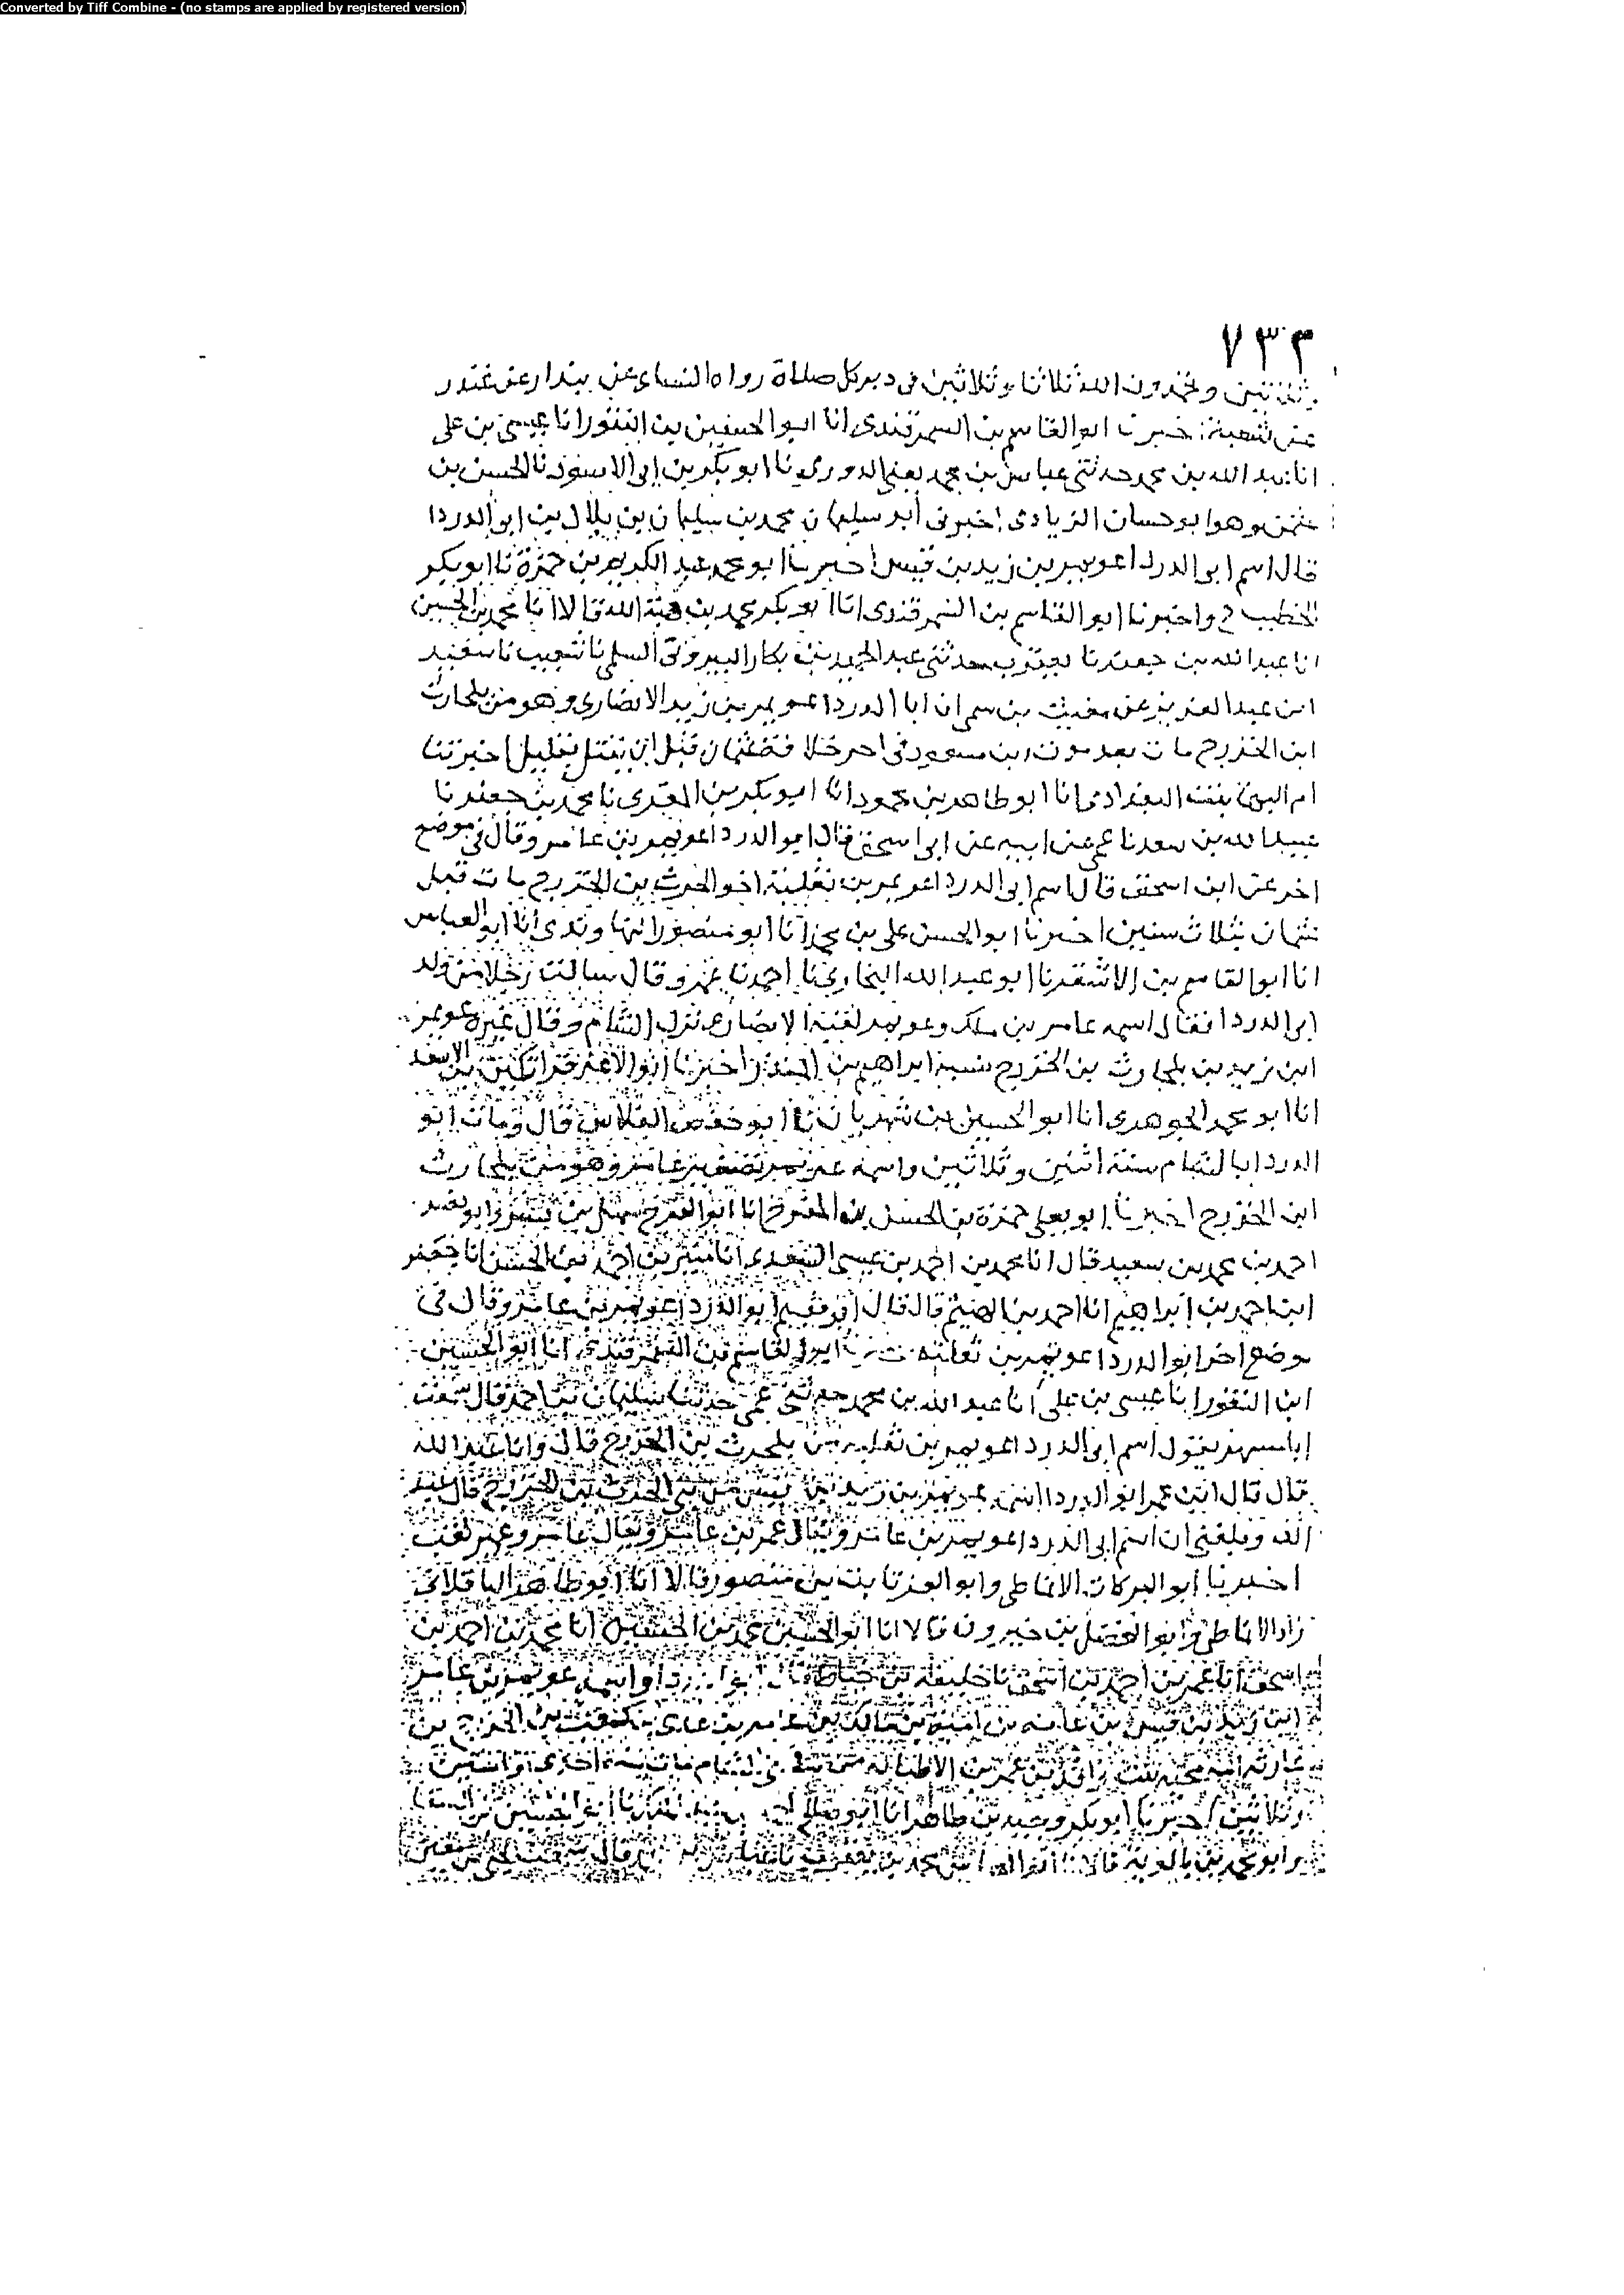 Converted by Tiff Combine - (no stamps are applied by registered version)
٧٣٣
وثلاثين وتحمدون الله ثلاثا وثلاثين في دبر كل صلاة رواه النساى عن بندار عن غندر
عن شعبة اخبرنا ابو القاسم بن السمرقندى انا ابو الحسين بن النقور انا عيسى بن على
انا عبد الله بن محمد حدثنى عباس بن محمد يعنى الدورى نا ابو بكر بن ابى الاسود نا الحسن بن
عثمن وهو ابو حسان الزيادى اخبرنى أبو سليمان محمد بن سليمان بن بلال بن ابى الدردا
قال اسم ابى الدردا عويمر بن زيد بن قيس اخبرنا ابو محمد عبد الكريم بن حمزة نا ابو بكر
الخطيب ح واخبرنا ابو القاسم بن السمرقندى انا ابو بكر محمد بن هبة الله قالا انا محمد بن الحسين
انا عبد الله بن جعفر نا يعقوب حدثنى عبد الحميد بن بكار البيروتى السلمى نا شعيب نا سعيد
ابن عبد العزيز عن مغيث بن سمى ان ابا الدردا عويمر بن زيد الانصارى وهو من بلحارث
ابن الخزرج مات بعد موت ابن مسعود فى اخر خلافة عثمان قبل ان يقتل بقليل اخبرتنا
ام البها بنت البغدادى انا ابو طاهر بن محمود انا ابو بكر بن المقرى نا محمد بن جعفر نا
عبيد الله بن سعد نا عمى عن ابيه عن ابى اسحق قال ابو الدردا عويمر بن عامر وقال فى موضع
اخر عن ابن اسحق قال اسم ابى الدردا عويمر بن ثعلبة اخو الحرث بن الخزرج مات قبل
عثمان بثلاث سنين اخبرنا ابو الحسن على بن محمد انا ابو منصور النهاوندى انا ابو العباس
انا ابو القاسم بن الاشقر نا ابو عبد الله البخارى نا احمد نا عمرو قال سالت رجلا من ولد
ابى الدردا فقال اسمه عامر بن ملك وعويمر لقبه الانصارى نزل الشام وقال غيره عويمر
ابن زيد بن بلحارث بن الخزرج نسبه ابراهيم بن المنذر اخبرنا ابو الاعز قراتكين بن الاسعد
انا ابو محمد الجوهرى انا ابو الحسين بن شهريار نا ابو حفص الفلاس قال ومات ابو
الدردا بالشام سنة اثنين وثلاثين واسمه عويمر تصغير عامر وهو من بلحارث
ابن الخزرج اخبرنا ابو يعلى حمزة بن الحسن بن المفرج انا ابو الفرج سهل بن بشر وابو نصر
احمد بن محمد بن سعيد قال انا محمد بن احمد بن عيسى السعدى انا منير بن احمد بن الحسن انا جعفر
ابن احمد بن ابراهيم انا احمد بن الهيثم قال قال ابو نعيم ابو الدردا عويمر بن عامر وقال فى
موضع اخر ابو الدردا عويمر بن ثعلبه ابو القاسم بن السمرقندى انا ابو الحسين
ابن النقور انا عيسى بن على انا عبد الله بن محمد حدثنى عمى حدثنا سليمان بن احمد قال سمعت
ابا مسهر يقول اسم ابى الدردا عويمر بن ثعلبه من بلحرث بن الخزرج قال وانا عبد الله
قال قال ابن عمر ابو الدردا اسمه عويمر بن زيد بن قيس من بنى الحرث بن الخزرج قال عبد
الله وبلغنى ان اسم ابى الدردا عويمر بن عامر ويقال عمر بن عامر ويقال عامر وعويمر لقب
اخبرنا ابو البركات الانماطى وابو العز ثابت بن منصور قالا انا ابو طاهر الباقلانى
زاد الانماطى وابو الفضل بن خيرون قالا انا ابو الحسين محمد بن الحسين انا محمد بن احمد بن
اسحق انا عمر بن احمد بن اسحق نا خليفة بن خياط واسمه عويمر بن عامر
ابن زيد بن قيس بن عامر بن امية بن مالك بن عامر بن عدى بن كعب بن الخزرج بن
امه محبه بنت واقد بن عمر بن الاطنابه الشام مات سنة احدى او اثنتين
وثلاثين اخبرنا ابو بكر وجيه بن طاهر انا ابو صالح
وابو محمد بن بالويه قالا محمد بن يعقوب قال سمعت يحيى بن معين